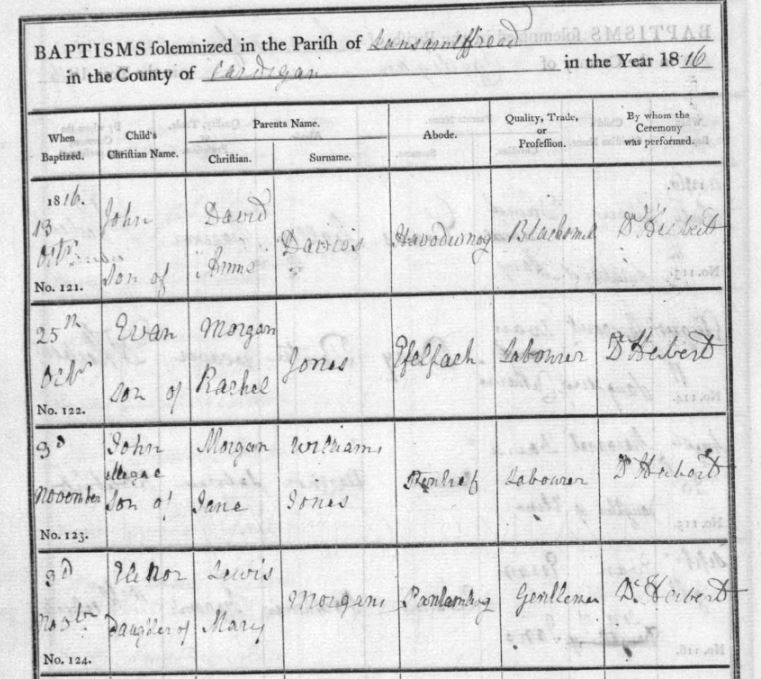 BAPTISMS solemnized in the Parish of Lansantffread
in the County of Cardigan in the Year 1816
When Baptized. Child's Christian Name. Parents Name. Abode. Quality, Trade, or Profession. By whom the Ceremony was performed.
Christian. Surname.
1816. John David
13 Davies Blacksmit Dr Herbert
Octr son of Anne
No. 121.
25th Evan Morgan
Jones Labourer Dr Herbert
Octr son of Rachel
No. 122.
3d John Morgan Williams
Labourer Dr Herbert
November son of Jane Jones
No. 123.
3d Elenor Lewis
Morgans Gentleman Dr Herbert
Daughter of Mary
No. 124.